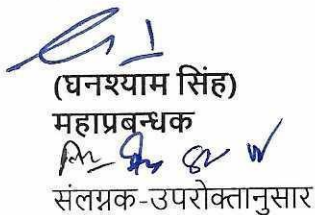 (घनश्याम सिंह)
महाप्रबन्धक
संलग्नक-उपरोक्तानुसार